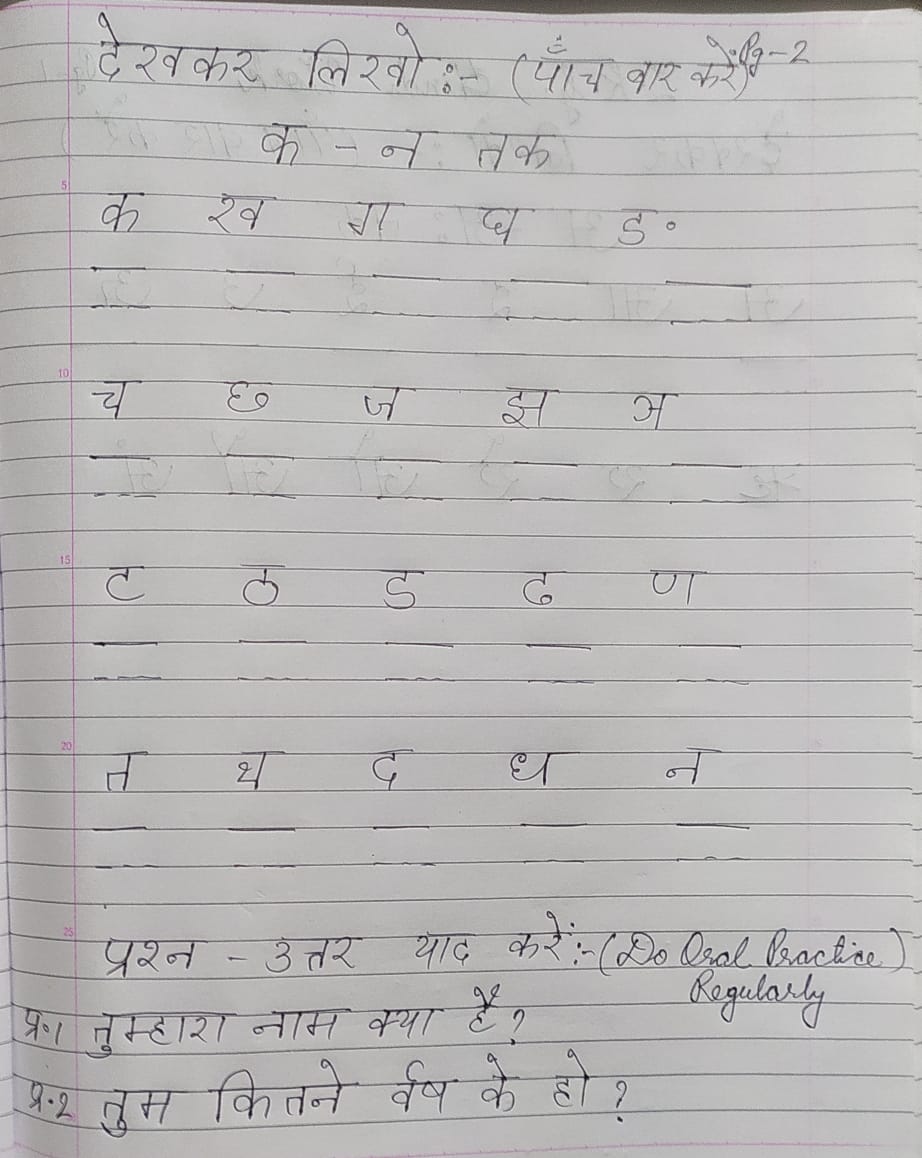 देखकर लिखो :- (पाँच बार करें) Pg-2
क - न तक
5
क ख ग घ ङ
10
च छ ज झ ञ
15
ट ठ ड ढ ण
20
त थ द ध न
25
प्रश्न - उत्तर याद करें :- (Do Oral Practice)
Regularly
प्र.1 तुम्हारा नाम क्या है ?
प्र.2 तुम कितने र्वष के हो ?